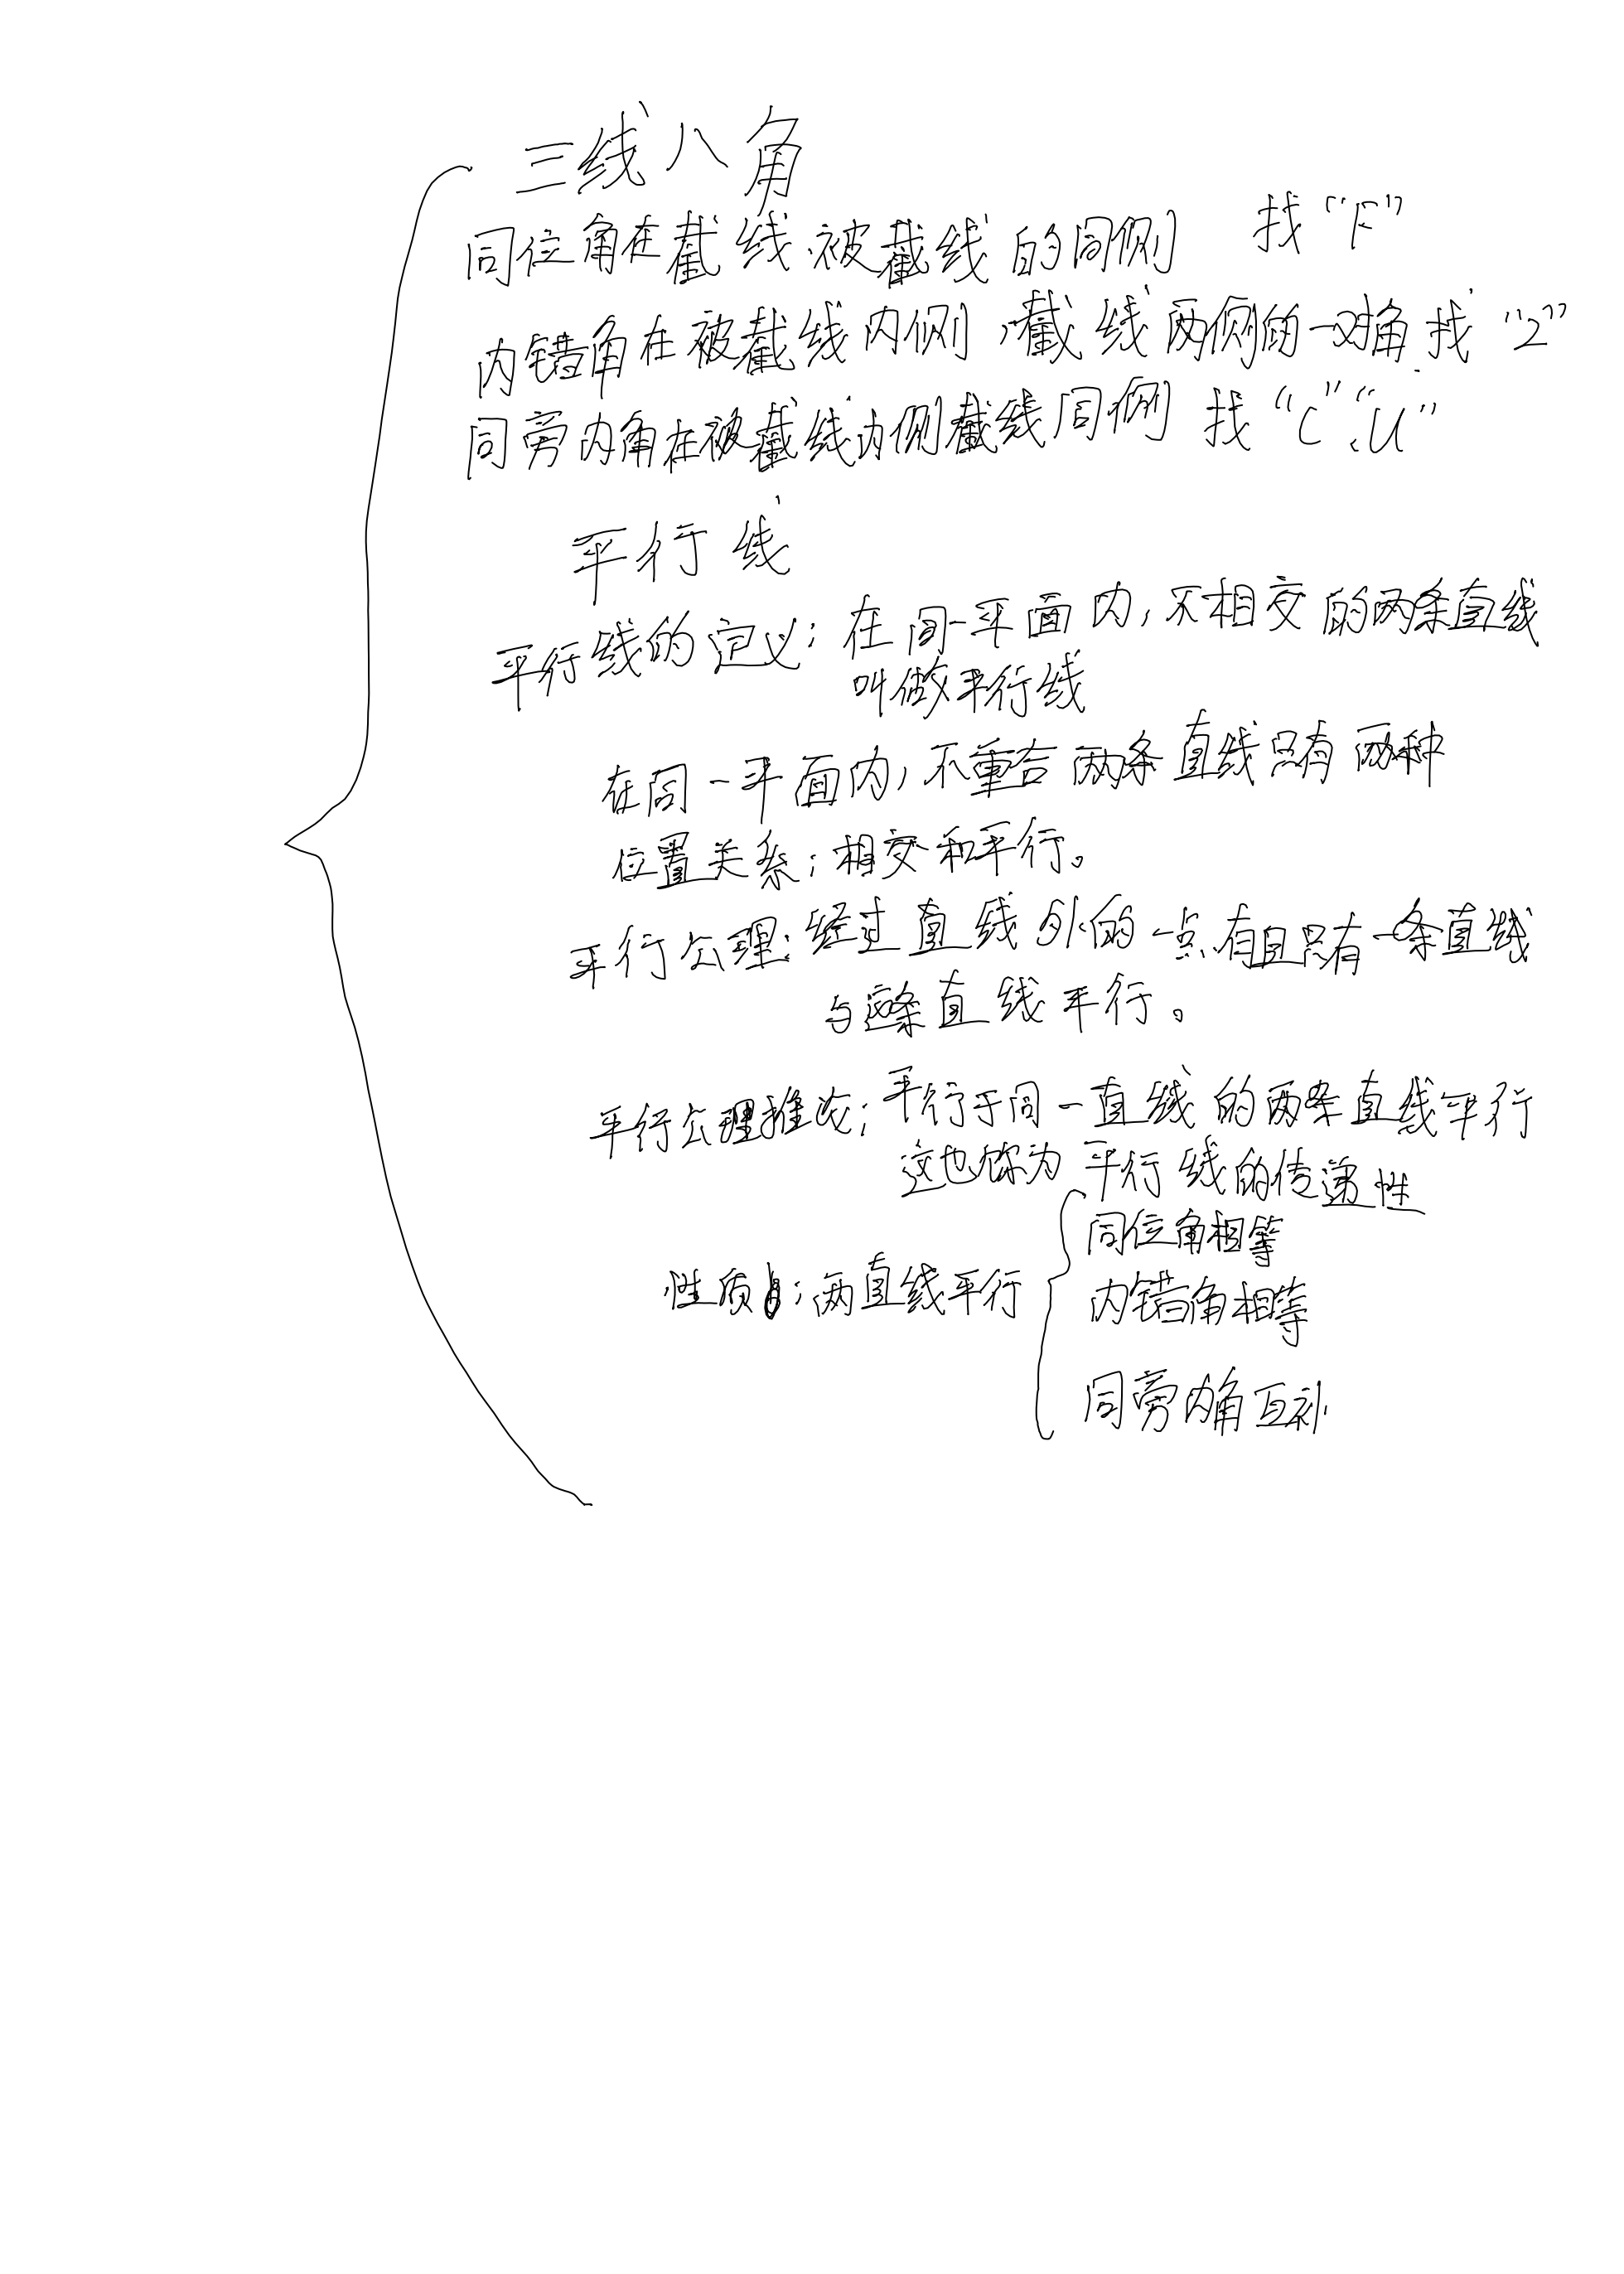 三线八角
同位角在截线、被截线的同侧 找“F”
内错角在被截线内侧，截线两侧的一对角 找“Z”
同旁内角在被截线内侧截线同侧 找“C”、“U”
平行线
平行线的定义：在同一平面内，不相交的两条直线
叫做平行线
在同一平面内，不重合两条直线只有两种
位置关系：相交和平行。
平行公理：经过直线外的一点，有且只有一条直线
与这条直线平行。
平行公理推论：平行于同一直线的两条直线平行
这也称为平行线的传递性
同位角相等
性质：两直线平行
内错角相等
同旁内角互补